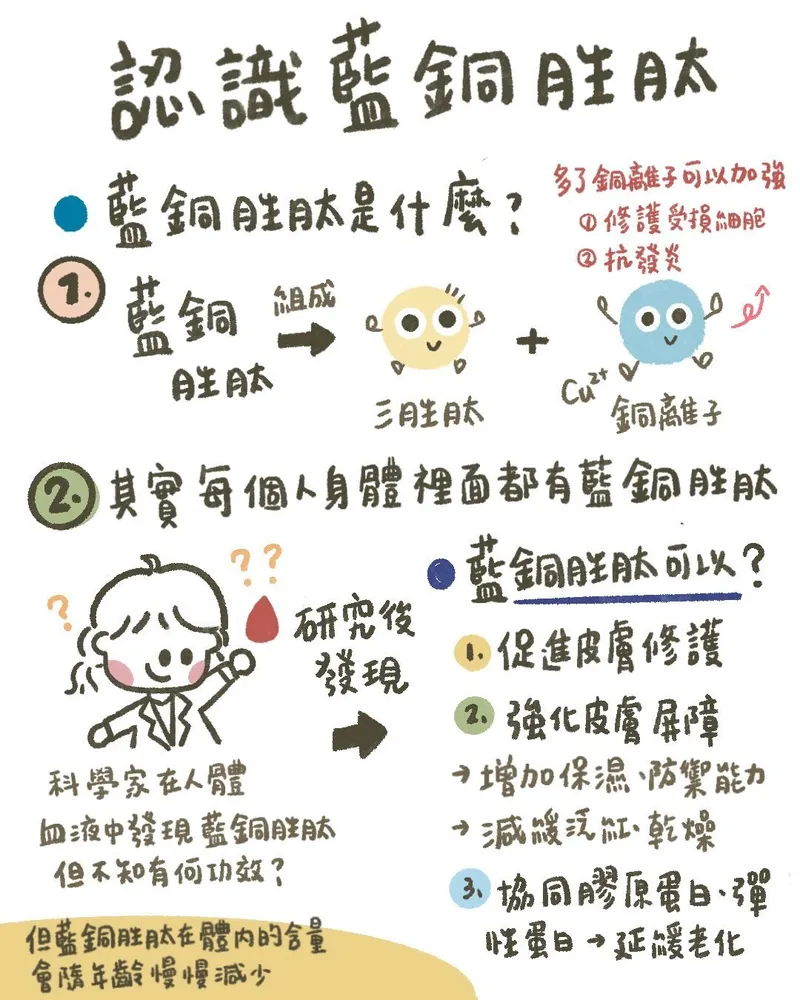 認識藍銅胜肽
藍銅胜肽是什麼?
多了銅離子可以加強
① 修護受損細胞
② 抗發炎
1.
藍銅
胜肽
組成
三胜肽
+
Cu²⁺
銅離子
2. 其實每個人身體裡面都有藍銅胜肽
? ? ?
科學家在人體
血液中發現藍銅胜肽
但不知有何功效?
研究後
發現
藍銅胜肽可以?
1. 促進皮膚修護
2. 強化皮膚屏障
→ 增加保濕、防禦能力
→ 減緩泛紅、乾燥
3. 協同膠原蛋白、彈
性蛋白→延緩老化
但藍銅胜肽在體內的含量
會隨年齡慢慢減少